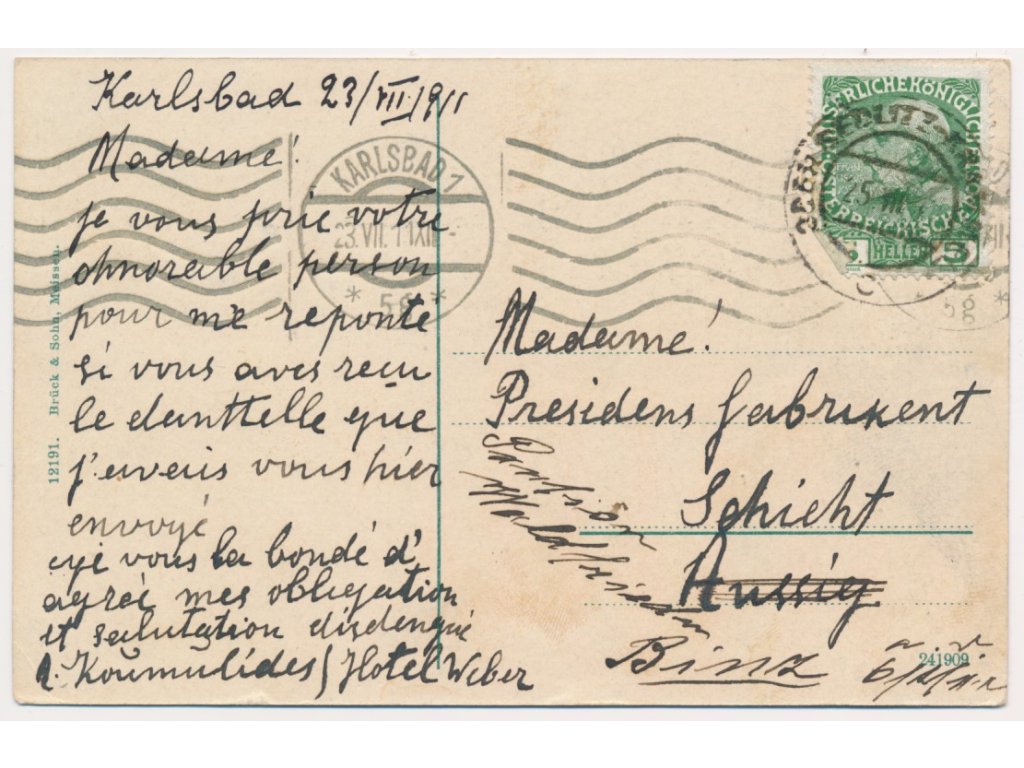 Karlsbad 23/VII/911
Madame!
je vous prie votre
ohnorable person
pour me reponte
si vous aves recu
le danttelle que
j'avais vous hier
envoyé
aye vous la bondé d'
agrée mes obligation
et salutation disdengué
Koumulides / Hotel Weber
12191. Brück & Sohn, Meissen.
KARLSBAD 1
23.VII.11 XII
* 5g *
KAISERLICHE KÖNIGLICHE
ÖSTERREICHISCHE
HELLER 5
25 VII
5g *
Madame!
Presidens fabrikent
Schicht
Aussig
Pansion
Binz
241909